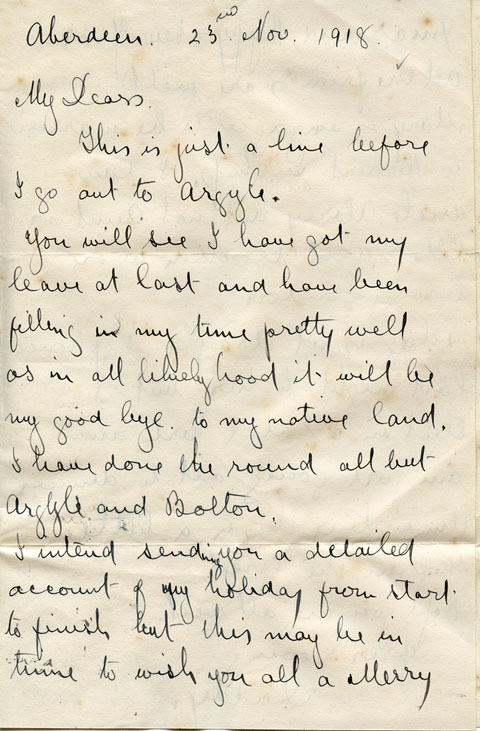 Aberdeen. 23nd Nov. 1918.
My Dears.
This is just a line before
I go out to Argyle.
You will see I have got my
leave at last and have been
filling in my time pretty well
as in all likelyhood it will be
my good bye. to my native land.
I have done the round all but
Argyle and Bolton.
I intend sending you a detailed
account of my holiday from start
to finish but this may be in
time to wish you all a Merry